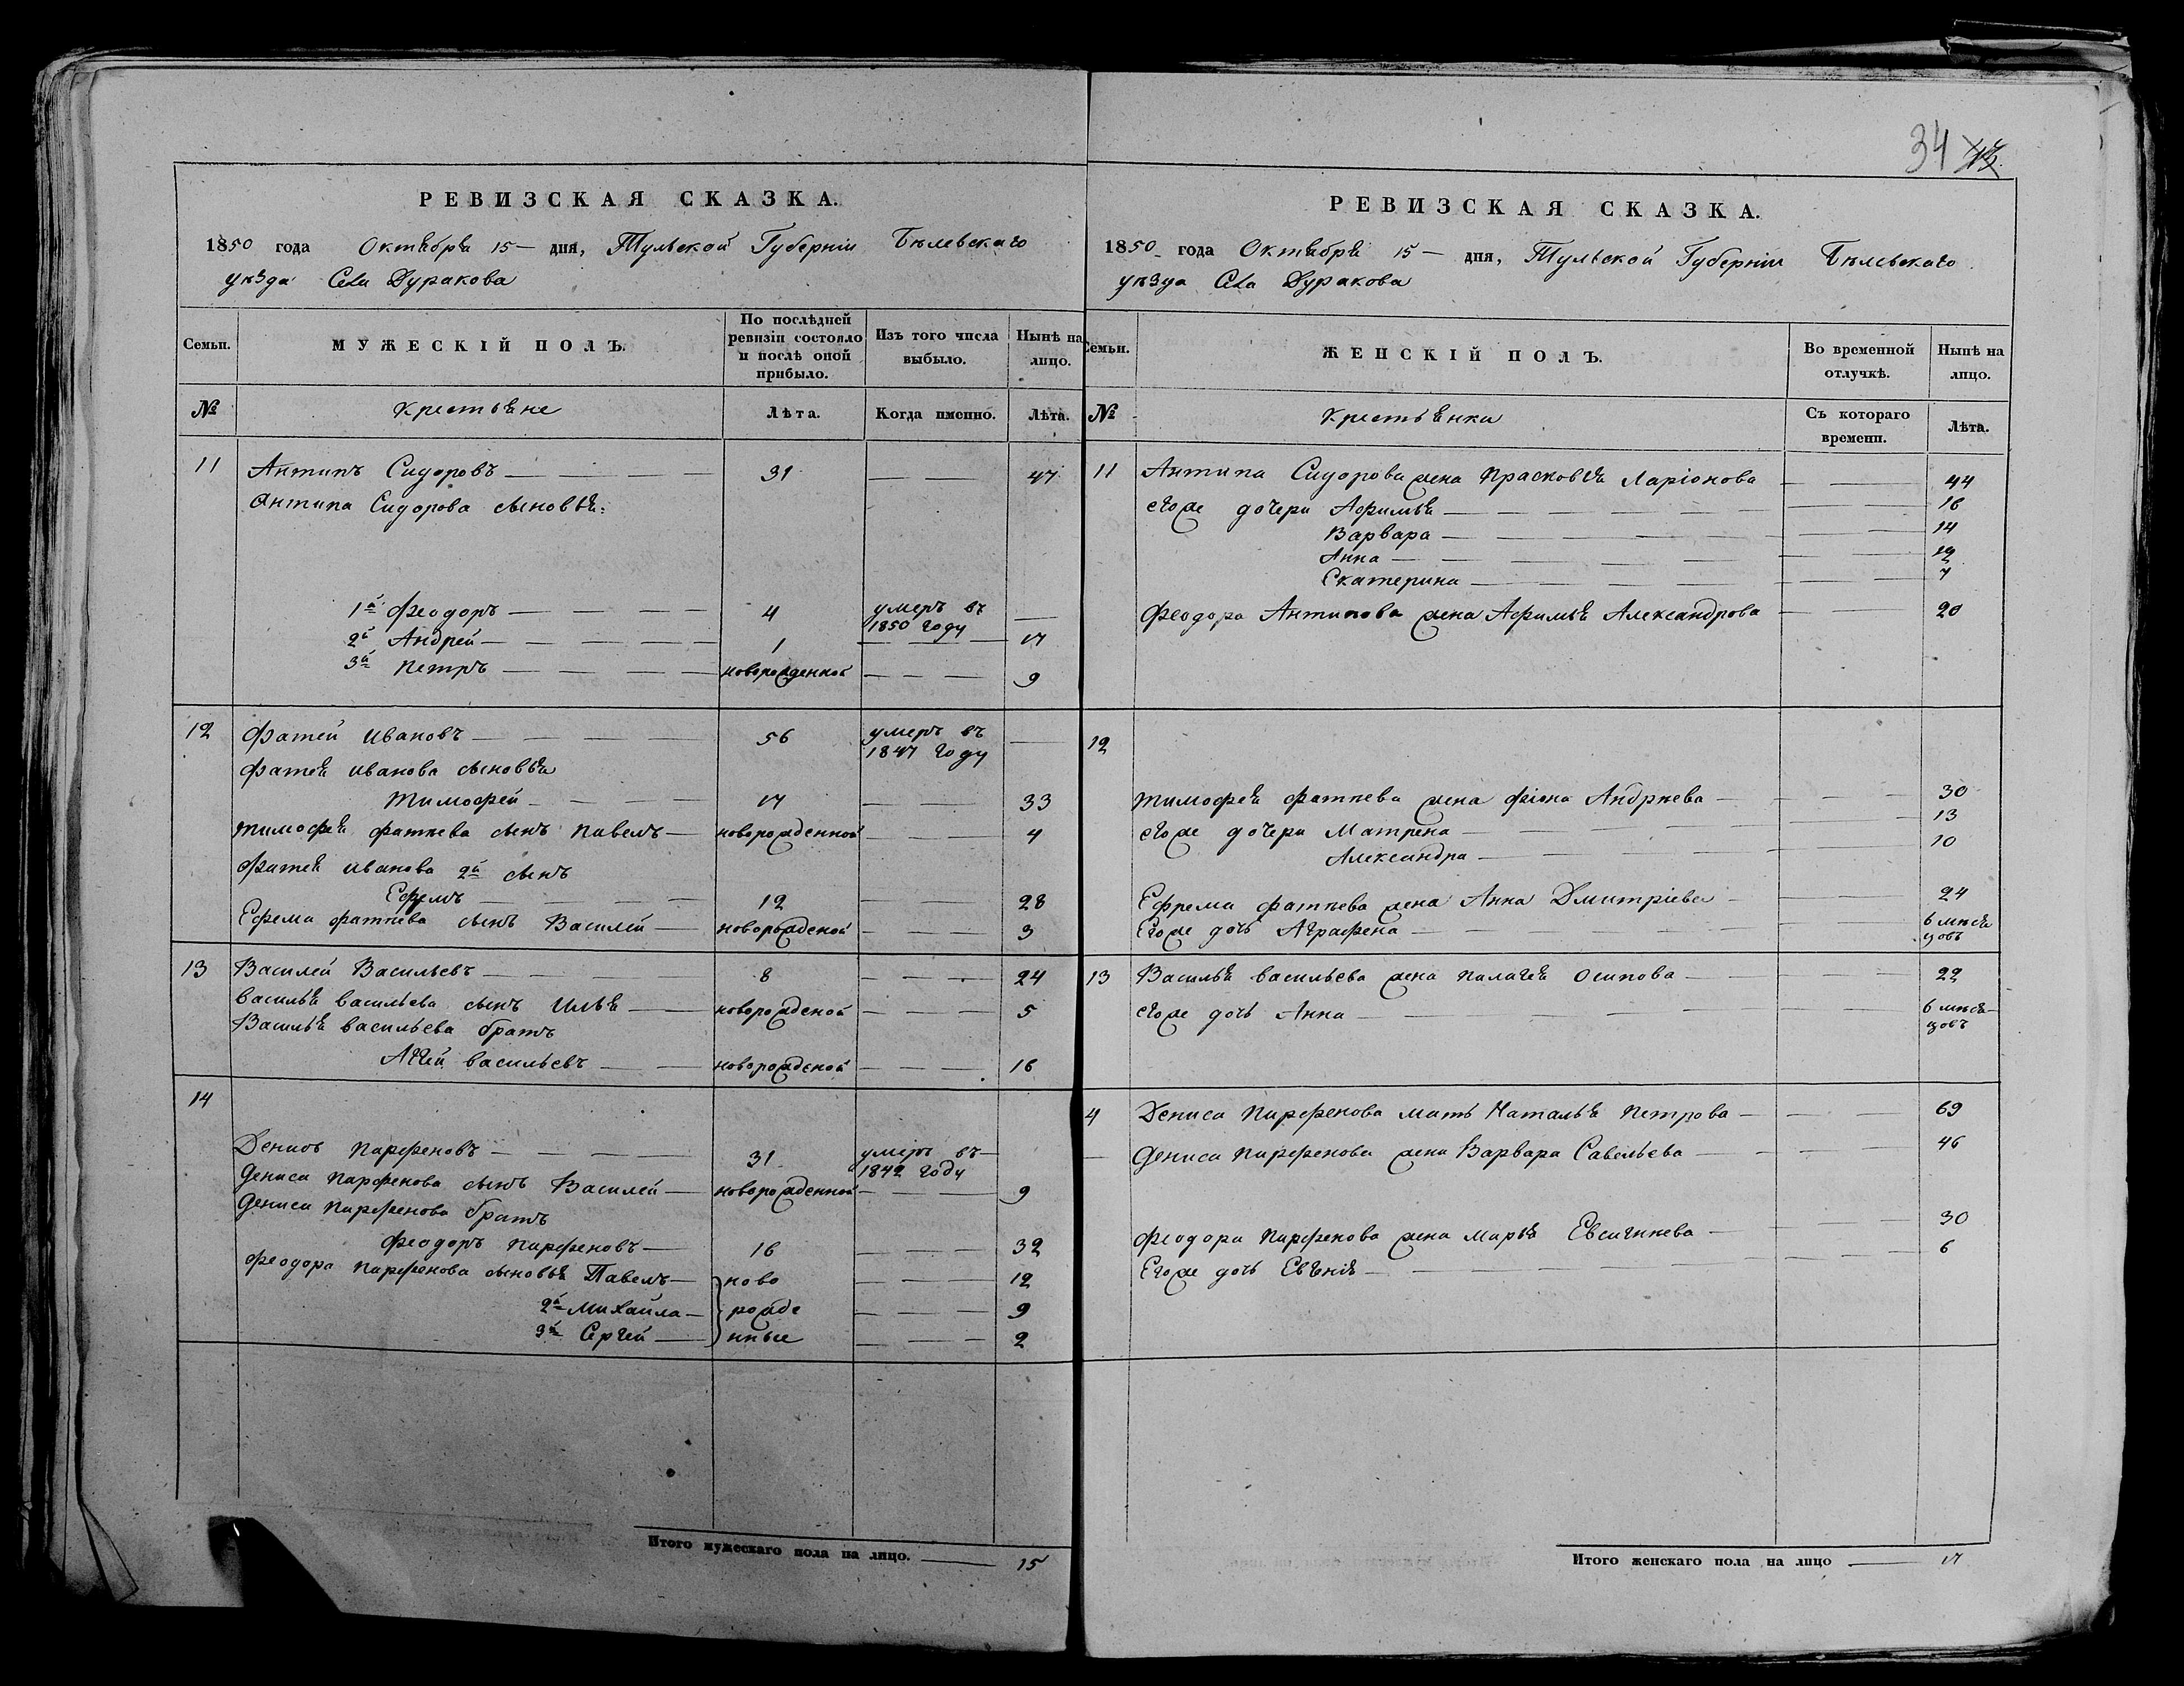 34 13.
РЕВИЗСКАЯ СКАЗКА.
1850 года Октября 15 — дня, Тульской Губерніи Бѣлевскаго
уѣзда Села Дуракова
Семьи.
МУЖЕСКІЙ ПОЛЪ.
По послѣдней ревизіи состояло и послѣ оной прибыло.
Изъ того числа выбыло.
Нынѣ на лицо.
№ Крестьяне Лѣта. Когда именно. Лѣта.
11 Антипъ Сидоровъ — 31 — 47
Антипа Сидорова сыновья:
1й Феодоръ — 4 умеръ въ 1850 году —
2й Андрей — 1 — 17
3й Петръ — новорожденной — 9
12 Фатей Ивановъ — 56 умеръ въ 1847 году —
Фатея Иванова сыновья
Тимофей — 17 — 33
Тимофея Фатѣева сынъ Павелъ — новорожденной — 4
Фатея Иванова 2й сынъ
Ефремъ — 12 — 28
Ефрема Фатѣева сынъ Василей — новорожденой — 3
13 Василей Васильевъ — 8 — 24
Василья Васильева сынъ Илья — новорожденой — 5
Василья Васильева братъ
Аггей Васильевъ — новорожденой — 16
14
Денисъ Парфеновъ — 31 умеръ въ 1842 году
Дениса Парфенова сынъ Василей — новорожденной — 9
Дениса Парфенова братъ
Феодоръ Парфеновъ — 16 — 32
Феодора Парфенова сыновья Павелъ — ново — 12
2й Михайла — рожде — 9
3й Сергей — нные — 2
Итого мужескаго пола на лицо. — 15
РЕВИЗСКАЯ СКАЗКА.
1850 года Октября 15 — дня, Тульской Губерніи Бѣлевскаго
уѣзда Села Дуракова
Семьи.
ЖЕНСКІЙ ПОЛЪ.
Во временной отлучкѣ.
Нынѣ на лицо.
№ Крестьянки Съ котораго времени. Лѣта.
11 Антипа Сидорова жена Прасковья Ларіонова — 44
егоже дочери Афимья — 16
Варвара — 14
Анна — 12
Екатерина — 7
Феодора Антипова жена Афимья Александрова — 20
12
Тимофея Фатѣева жена Фіона Андрѣева — 30
егоже дочери Матрена — 13
Александра — 10
Ефрема Фатѣева жена Анна Дмитріева — 24
Егоже дочь Аграфена — 6 мѣся цовъ
13 Василья Васильева жена Палагея Осипова — 22
егоже дочь Анна — 6 мѣся-цовъ
4 Дениса Парфенова мать Наталья Петрова — 69
Дениса Парфенова жена Варвара Савельева — 46
Феодора Парфенова жена Марья Евсигнѣева — 30
Егоже дочь Евгнія — 6
Итого женскаго пола на лицо — 17